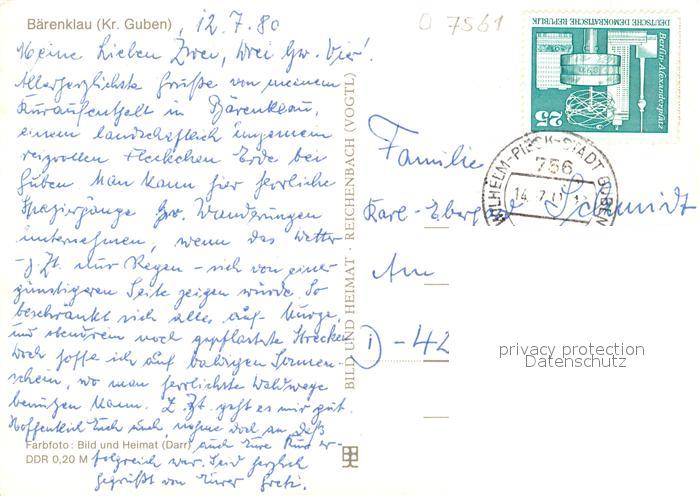 Bärenklau (Kr. Guben), 12.7.80
O 7561
Meine Lieben Zwei, drei bzw. Vier!
Allerherzlichste Grüße von meinem
Kuraufenthalt in Bärenklau,
einem landschaftlich ungemein
reizvollen Fleckchen Erde bei
Guben. Man kann hier herrliche
Spaziergänge bzw. Wanderungen
unternehmen, wenn das Wetter
- z. Zt. nur Regen - sich von einer
günstigeren Seite zeigen würde. So
beschränkt sich alles auf kurze,
und obendrein noch gepflasterte Strecken
Doch hoffe ich auf baldigen Sonnen-
schein, wo man herrlichste Waldwege
benutzen kann. Z. Zt. geht es mir gut.
Hoffentlich Euch auch, nehme doch an, daß
auch Eure Kur er-
folgreich war. Seid herzlich
gegrüßt von Eurer Greti.
Farbfoto: Bild und Heimat (Darr)
DDR 0,20 M
BILD UND HEIMAT · REICHENBACH (VOGTL)
DEUTSCHE DEMOKRATISCHE REPUBLIK
Berlin-Alexanderplatz
25
WILHELM-PIECK-STADT GUBEN
756
14.7.
Familie
Karl-Eberhard Schmidt
Am
-42
privacy protection
Datenschutz